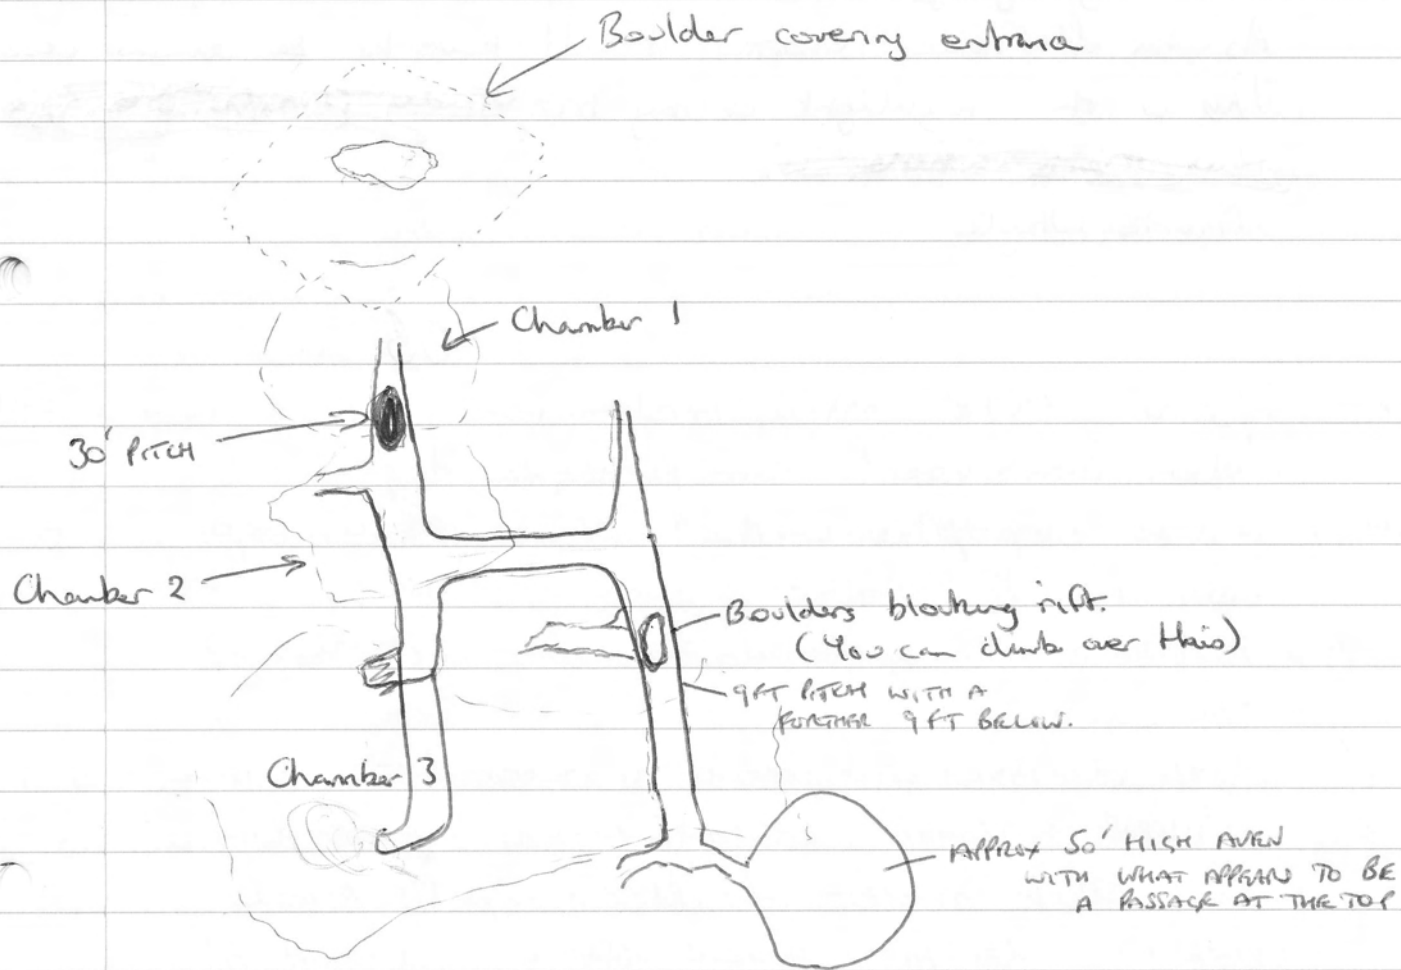 Boulder covering entrance
Chamber 1
30' PITCH
Chamber 2
Boulders blocking rift.
(You can climb over this)
9FT PITCH WITH A
FURTHER 9FT BELOW.
Chamber 3
APPROX 50' HIGH AVEN
WITH WHAT APPEARS TO BE
A PASSAGE AT THE TOP